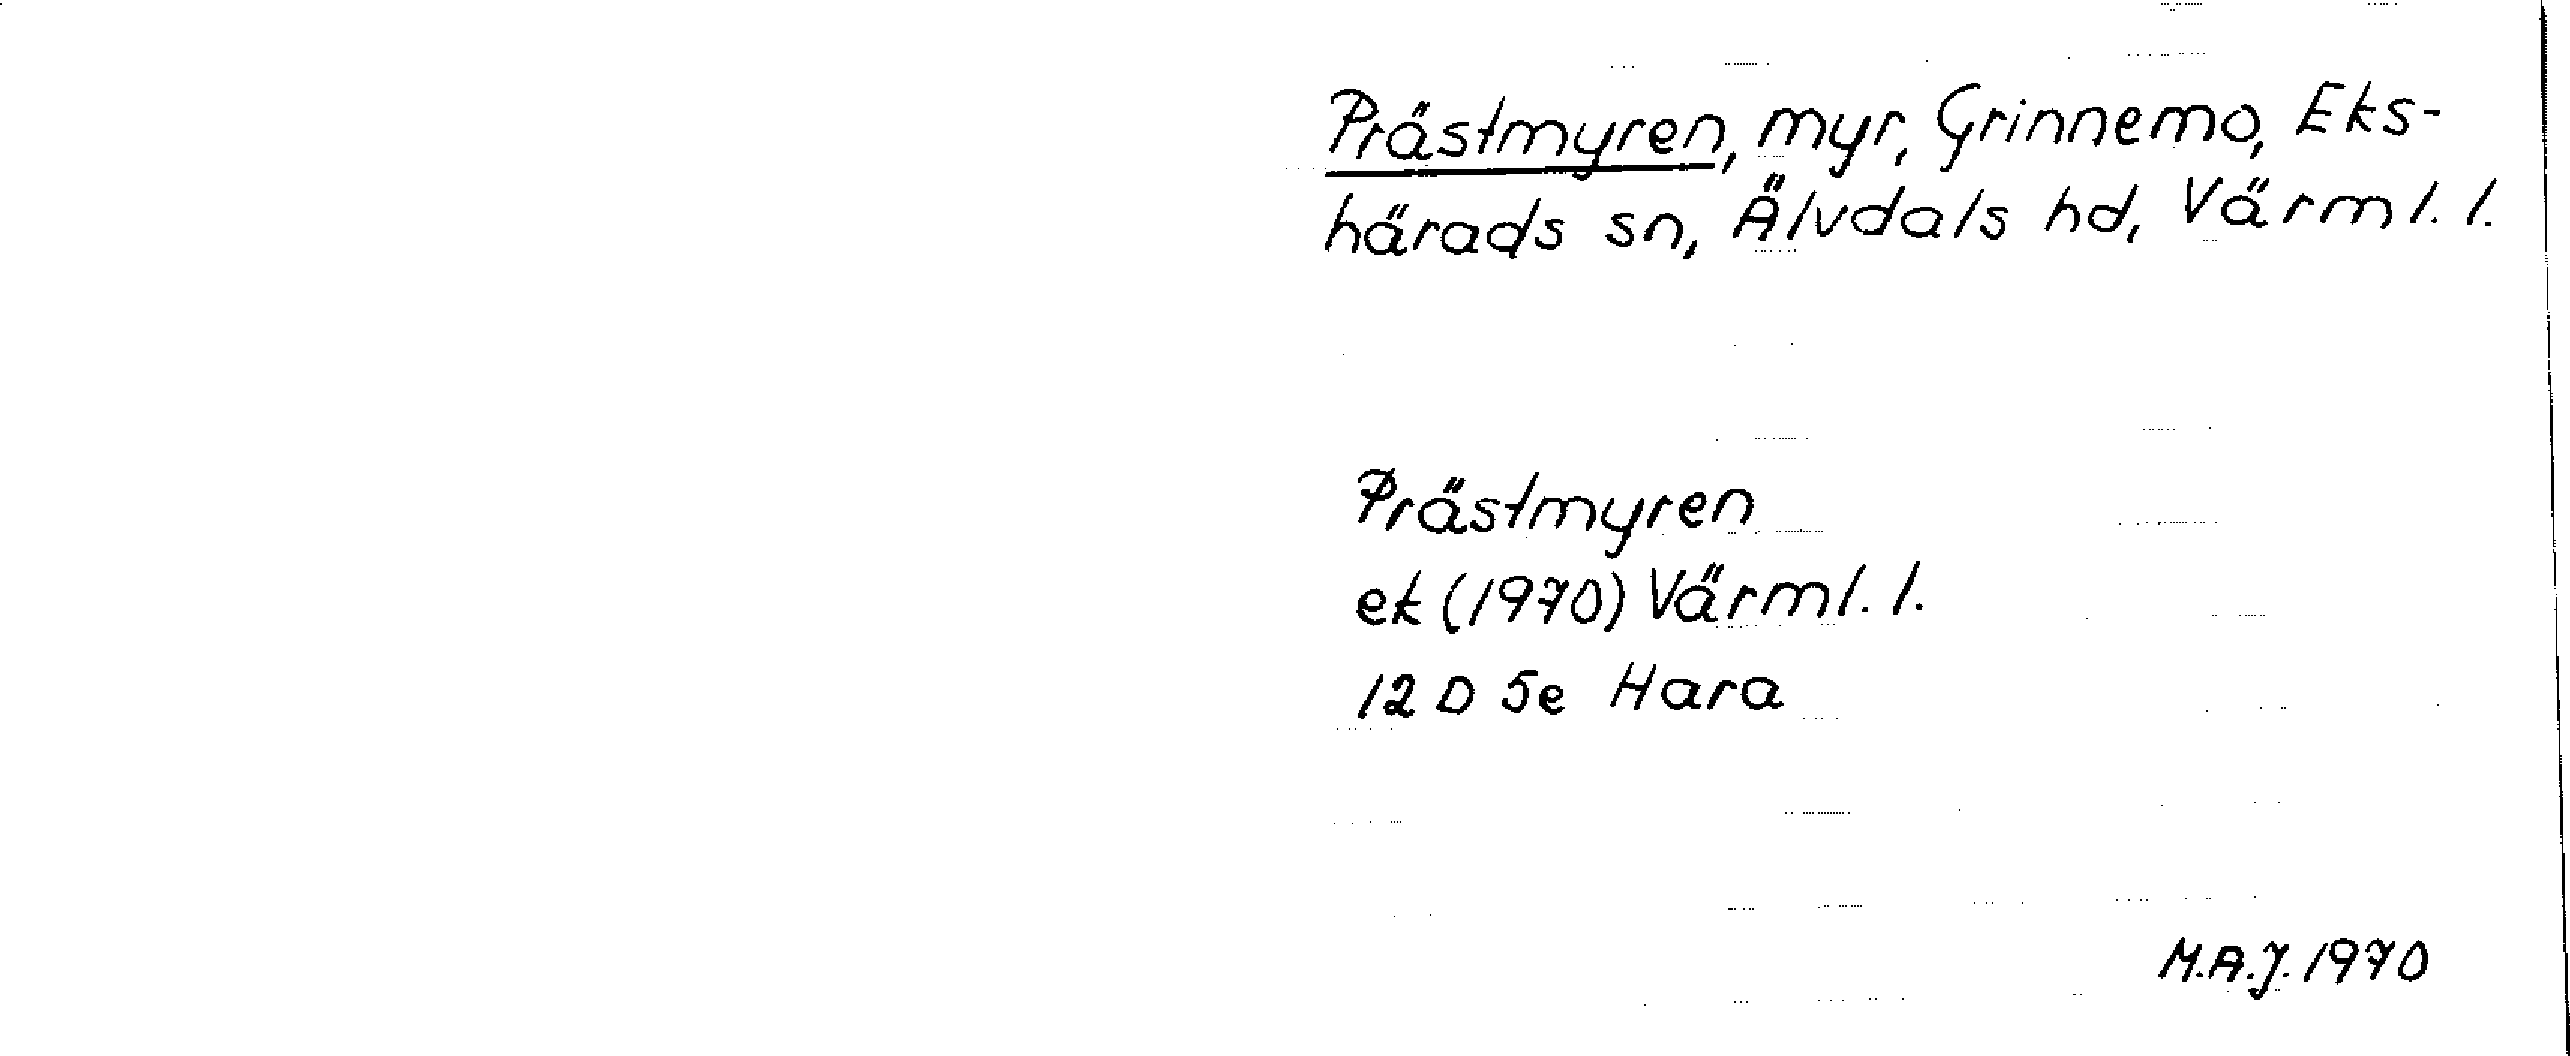 Prästmyren, myr, Grinnemo, Eks-
härads sn, Älvdals hd, Värml. l.
Prästmyren
ek (1970) Värml. l.
12 D 5e Hara
M.A.J. 1970